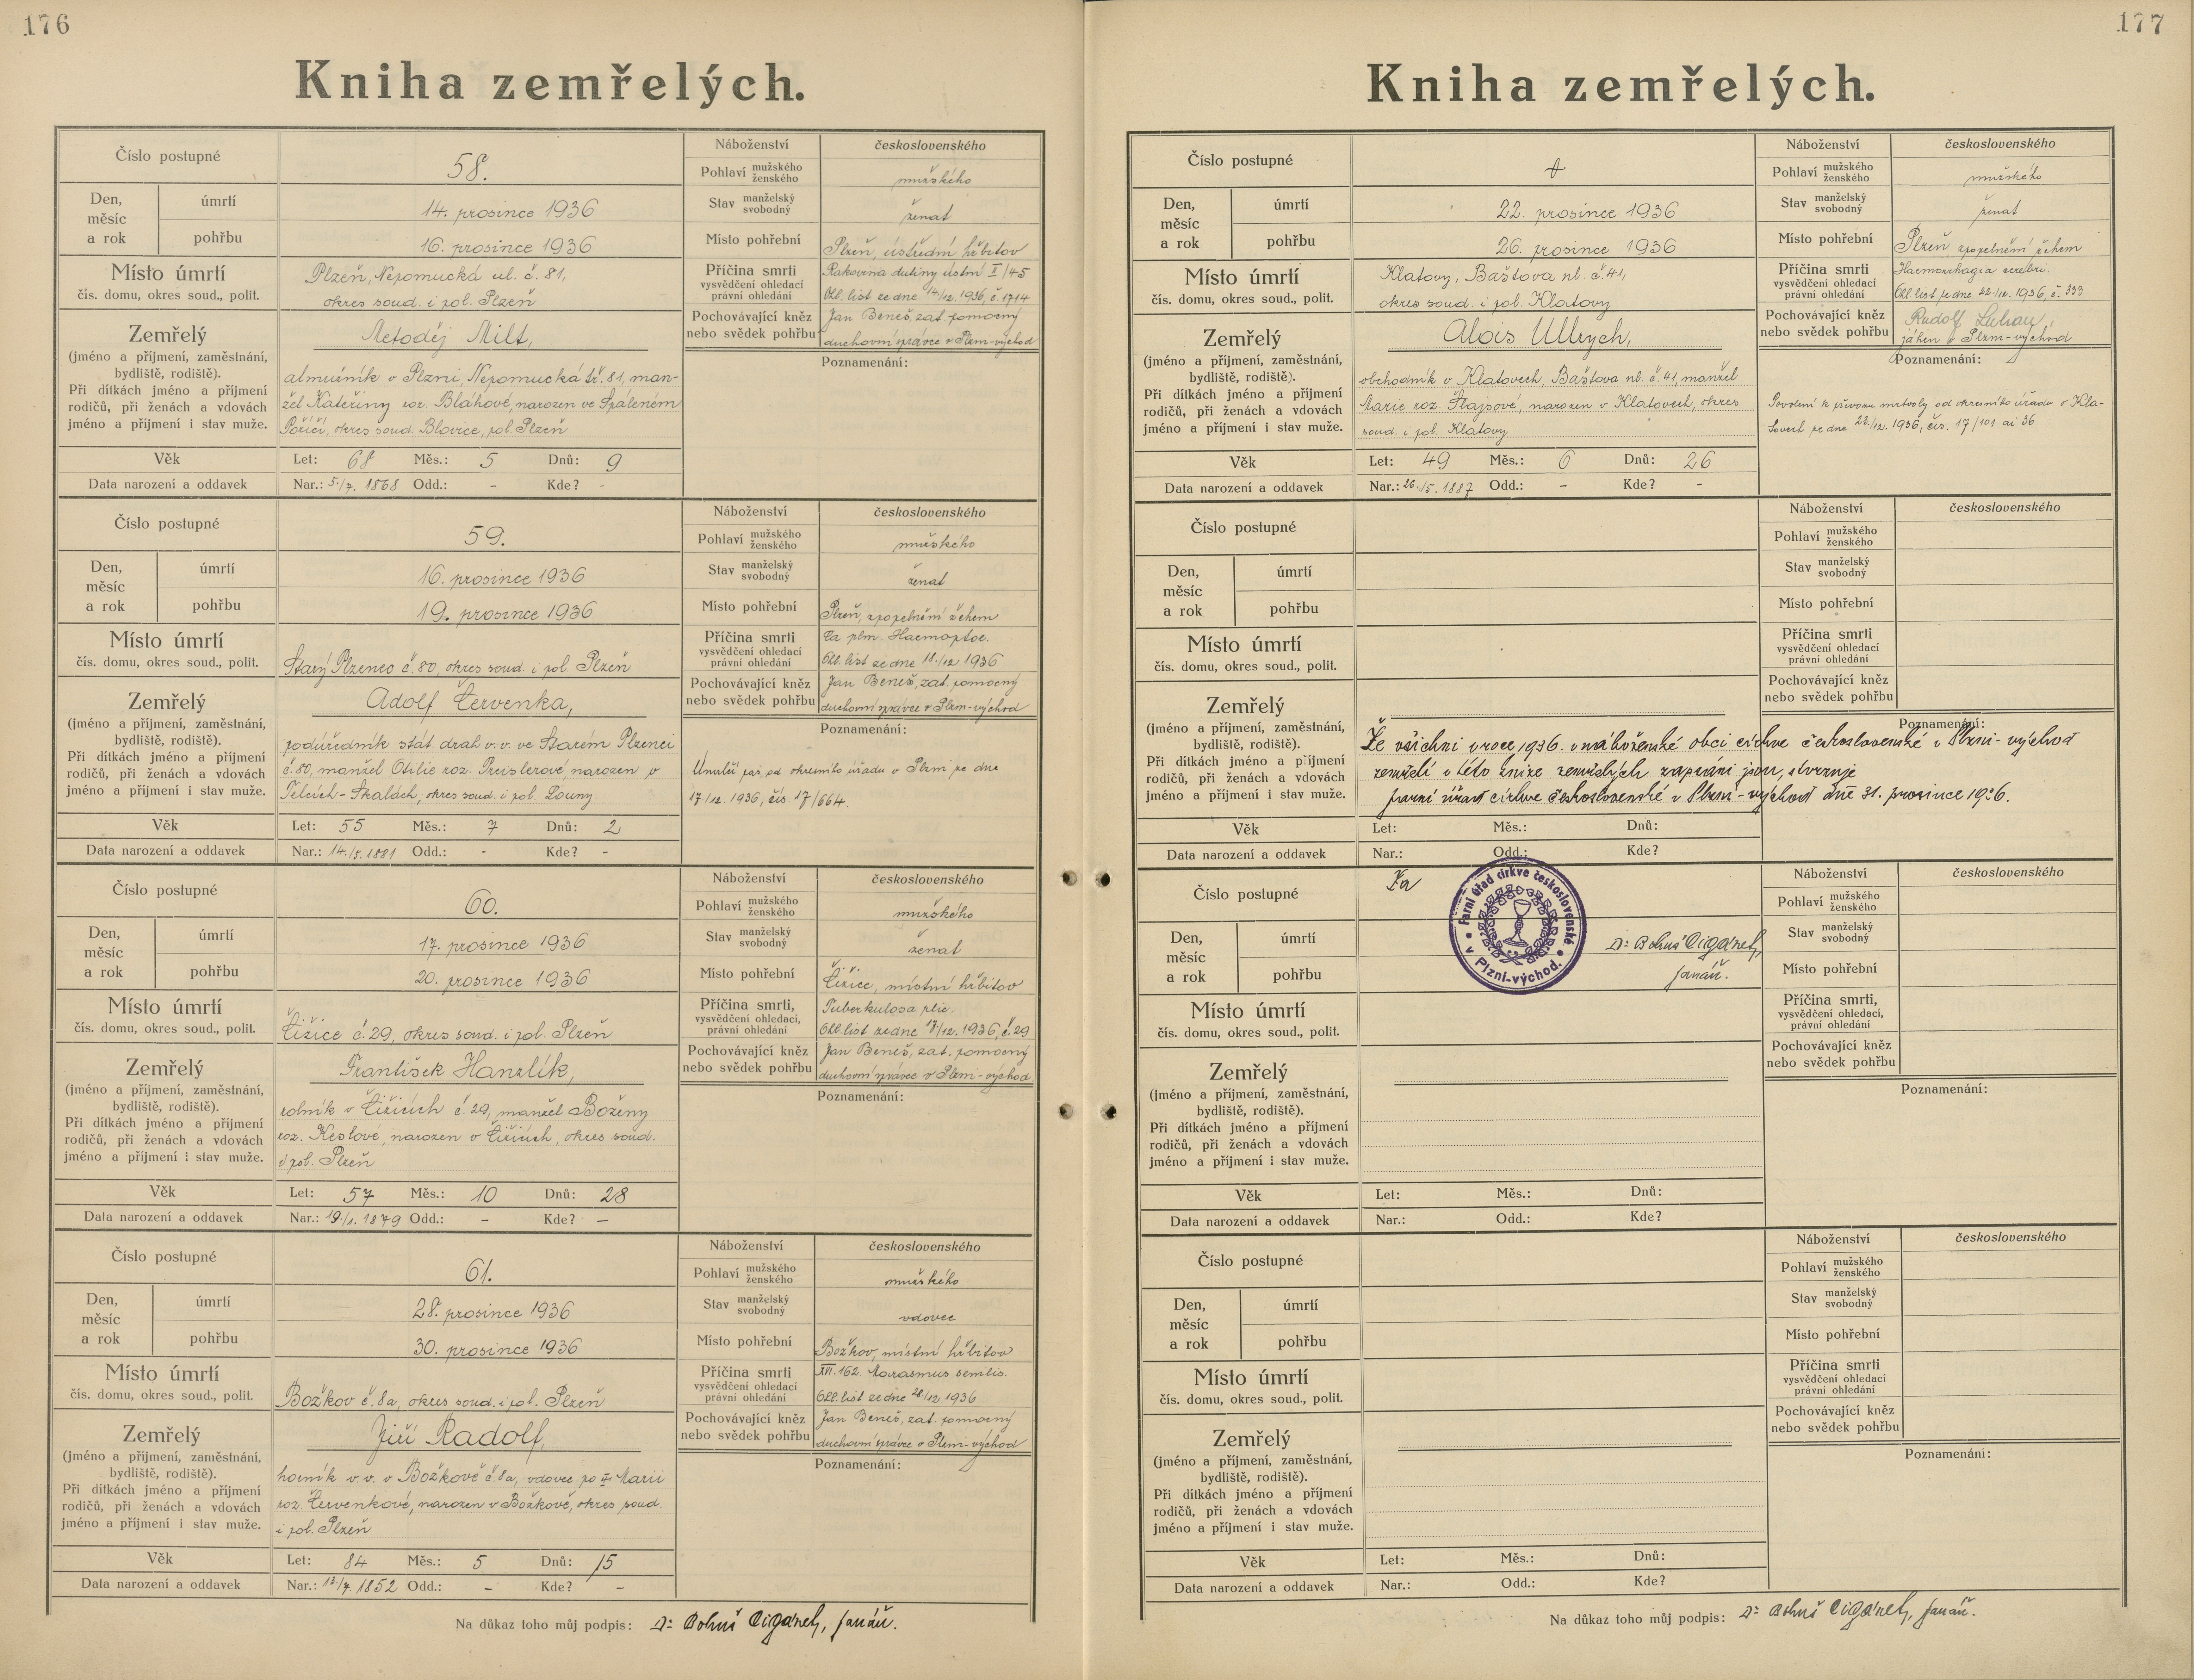 176
Kniha zemřelých.
Číslo postupné
58.
Náboženství
československého
Pohlaví mužského ženského
mužského
Den, měsíc a rok
úmrtí
14. prosince 1936
Stav manželský svobodný
ženat
pohřbu
16. prosince 1936
Místo pohřební
Plzeň, ústřední hřbitov
Místo úmrtí
čís. domu, okres soud., polit.
Plzeň, Nepomucká ul. č. 81,
okres soud. i pol. Plzeň
Příčina smrti
vysvědčení ohledací
právní ohledání
Rakovina dutiny ústní I/45
Ohl. list ze dne 14/12. 1936, č. 1714
Pochovávající kněz
nebo svědek pohřbu
Jan Beneš, zat. pomocný
duchovní správce v Plzni-východ
Zemřelý
(jméno a příjmení, zaměstnání,
bydliště, rodiště).
Při dítkách jméno a příjmení
rodičů, při ženách a vdovách
jméno a příjmení i stav muže.
Metoděj Milt,
almužník v Plzni, Nepomucká tř. 81, man-
žel Kateřiny roz. Bláhové, narozen ve Spáleném
Poříčí, okres soud. Blovice, pol. Plzeň
Poznamenání:
Věk
Let: 68 Měs.: 5 Dnů: 9
Data narození a oddavek
Nar.: 5./7. 1868 Odd.: - Kde? -
Číslo postupné
59.
Náboženství
československého
Pohlaví mužského ženského
mužského
Den, měsíc a rok
úmrtí
16. prosince 1936
Stav manželský svobodný
ženat
pohřbu
19. prosince 1936
Místo pohřební
Plzeň, zpopelněním žehem
Místo úmrtí
čís. domu, okres soud., polit.
Starý Plzenec č. 80, okres soud. i pol. Plzeň
Příčina smrti
vysvědčení ohledací
právní ohledání
Ca plm. Haemoptoe.
Ohl. list ze dne 18./12 1936
Pochovávající kněz
nebo svědek pohřbu
Jan Beneš, zat. pomocný
duchovní správce v Plzni-východ
Zemřelý
(jméno a příjmení, zaměstnání,
bydliště, rodiště).
Při dítkách jméno a příjmení
rodičů, při ženách a vdovách
jméno a příjmení i stav muže.
Adolf Červenka,
podúředník stát. drah v. v. ve Starém Plzenci
č. 80, manžel Otilie roz. Preislerové, narozen v
Telcích-Skalách, okres soud. i pol. Louny
Poznamenání:
Umrlčí pas od okresního úřadu v Plzni ze dne
17./12. 1936, čís. 17/664.
Věk
Let: 55 Měs.: 7 Dnů: 2
Data narození a oddavek
Nar.: 14./5. 1881 Odd.: - Kde? -
Číslo postupné
60.
Náboženství
československého
Pohlaví mužského ženského
mužského
Den, měsíc a rok
úmrtí
17. prosince 1936
Stav manželský svobodný
ženat
pohřbu
20. prosince 1936
Místo pohřební
Čižice, místní hřbitov
Místo úmrtí
čís. domu, okres soud., polit.
Čižice č. 29, okres soud. i pol. Plzeň
Příčina smrti,
vysvědčení ohledací,
právní ohledání
Tuberkulosa plic.
Ohl. list ze dne 17/12. 1936, č. 29
Pochovávající kněz
nebo svědek pohřbu
Jan Beneš, zat. pomocný
duchovní správce v Plzni-východ
Zemřelý
(jméno a příjmení, zaměstnání,
bydliště, rodiště).
Při dítkách jméno a příjmení
rodičů, při ženách a vdovách
jméno a příjmení i stav muže.
František Hanzlík,
rolník v Čižicích č. 29, manžel Boženy
roz. Keslové, narozen v Čižicích, okres soud.
i pol. Plzeň
Poznamenání:
Věk
Let: 57 Měs.: 10 Dnů: 28
Data narození a oddavek
Nar.: 19./1. 1879 Odd.: - Kde? -
Číslo postupné
61.
Náboženství
československého
Pohlaví mužského ženského
mužského
Den, měsíc a rok
úmrtí
28. prosince 1936
Stav manželský svobodný
vdovec
pohřbu
30. prosince 1936
Místo pohřební
Božkov, místní hřbitov
Místo úmrtí
čís. domu, okres soud., polit.
Božkov č. 8a, okres soud. i pol. Plzeň
Příčina smrti
vysvědčení ohledací
právní ohledání
XVI. 162. Marasmus senilis.
Ohl. list ze dne 28/12 1936
Pochovávající kněz
nebo svědek pohřbu
Jan Beneš, zat. pomocný
duchovní správce v Plzni-východ
Zemřelý
(jméno a příjmení, zaměstnání,
bydliště, rodiště).
Při dítkách jméno a příjmení
rodičů, při ženách a vdovách
jméno a příjmení i stav muže.
Jiří Radolf,
horník v. v. v Božkově č. 8a, vdovec po Marii
roz. Červenkové, narozen v Božkově, okres soud.
i pol. Plzeň
Poznamenání:
Věk
Let: 84 Měs.: 5 Dnů: 15
Data narození a oddavek
Nar.: 13./7. 1852 Odd.: - Kde? -
Na důkaz toho můj podpis: Dr Bohuš Cigánek, farář.
177
Kniha zemřelých.
Číslo postupné
Náboženství
československého
Pohlaví mužského ženského
mužského
Den, měsíc a rok
úmrtí
22. prosince 1936
Stav manželský svobodný
ženat
pohřbu
26. prosince 1936
Místo pohřební
Plzeň zpopelnění žehem
Místo úmrtí
čís. domu, okres soud., polit.
Klatovy, Baštova ul. č. 41,
okres soud. i pol. Klatovy
Příčina smrti
vysvědčení ohledací
právní ohledání
Haemorrhagia cerebri.
Ohl. list ze dne 22./12. 1936, č. 333
Pochovávající kněz
nebo svědek pohřbu
Rudolf
jáhen v Plzni-východ
Zemřelý
(jméno a příjmení, zaměstnání,
bydliště, rodiště).
Při dítkách jméno a příjmení
rodičů, při ženách a vdovách
jméno a příjmení i stav muže.
Alois Ullrych,
obchodník v Klatovech, Baštova ul. č. 41, manžel
Marie roz. Štajsové, narozen v Klatovech, okres
soud. i pol. Klatovy
Poznamenání:
Povolení k převozu mrtvoly od okresního úřadu v Kla-
tovech ze dne 23./12. 1936, čís. 17/101 ai 36
Věk
Let: 49 Měs.: 6 Dnů: 26
Data narození a oddavek
Nar.: 26./5. 1887 Odd.: - Kde? -
Číslo postupné
Náboženství
československého
Pohlaví mužského ženského
Den, měsíc a rok
úmrtí
Stav manželský svobodný
pohřbu
Místo pohřební
Místo úmrtí
čís. domu, okres soud., polit.
Příčina smrti
vysvědčení ohledací
právní ohledání
Pochovávající kněz
nebo svědek pohřbu
Zemřelý
(jméno a příjmení, zaměstnání,
bydliště, rodiště).
Při dítkách jméno a příjmení
rodičů, při ženách a vdovách
jméno a příjmení i stav muže.
Poznamenání:
Že všichni v roce 1936. v náboženské obci církve československé v Plzni-východ
zemřelí v této knize zemřelých zapsáni jsou, stvrzuje
farní úřad církve československé v Plzni-východ dne 31. prosince 1936.
Věk
Let: Měs.: Dnů:
Data narození a oddavek
Nar.: Odd.: Kde?
Číslo postupné
Za
Farní úřad církve československé
v Plzni-východ.
Dr Bohuš Cigánek,
farář.
Náboženství
československého
Pohlaví mužského ženského
Den, měsíc a rok
úmrtí
Stav manželský svobodný
pohřbu
Místo pohřební
Místo úmrtí
čís. domu, okres soud., polit.
Příčina smrti,
vysvědčení ohledací,
právní ohledání
Pochovávající kněz
nebo svědek pohřbu
Zemřelý
(jméno a příjmení, zaměstnání,
bydliště, rodiště).
Při dítkách jméno a příjmení
rodičů, při ženách a vdovách
jméno a příjmení i stav muže.
Poznamenání:
Věk
Let: Měs.: Dnů:
Data narození a oddavek
Nar.: Odd.: Kde?
Číslo postupné
Náboženství
československého
Pohlaví mužského ženského
Den, měsíc a rok
úmrtí
Stav manželský svobodný
pohřbu
Místo pohřební
Místo úmrtí
čís. domu, okres soud., polit.
Příčina smrti
vysvědčení ohledací
právní ohledání
Pochovávající kněz
nebo svědek pohřbu
Zemřelý
(jméno a příjmení, zaměstnání,
bydliště, rodiště).
Při dítkách jméno a příjmení
rodičů, při ženách a vdovách
jméno a příjmení i stav muže.
Poznamenání:
Věk
Let: Měs.: Dnů:
Data narození a oddavek
Nar.: Odd.: Kde?
Na důkaz toho můj podpis: Dr Bohuš Cigánek, farář.